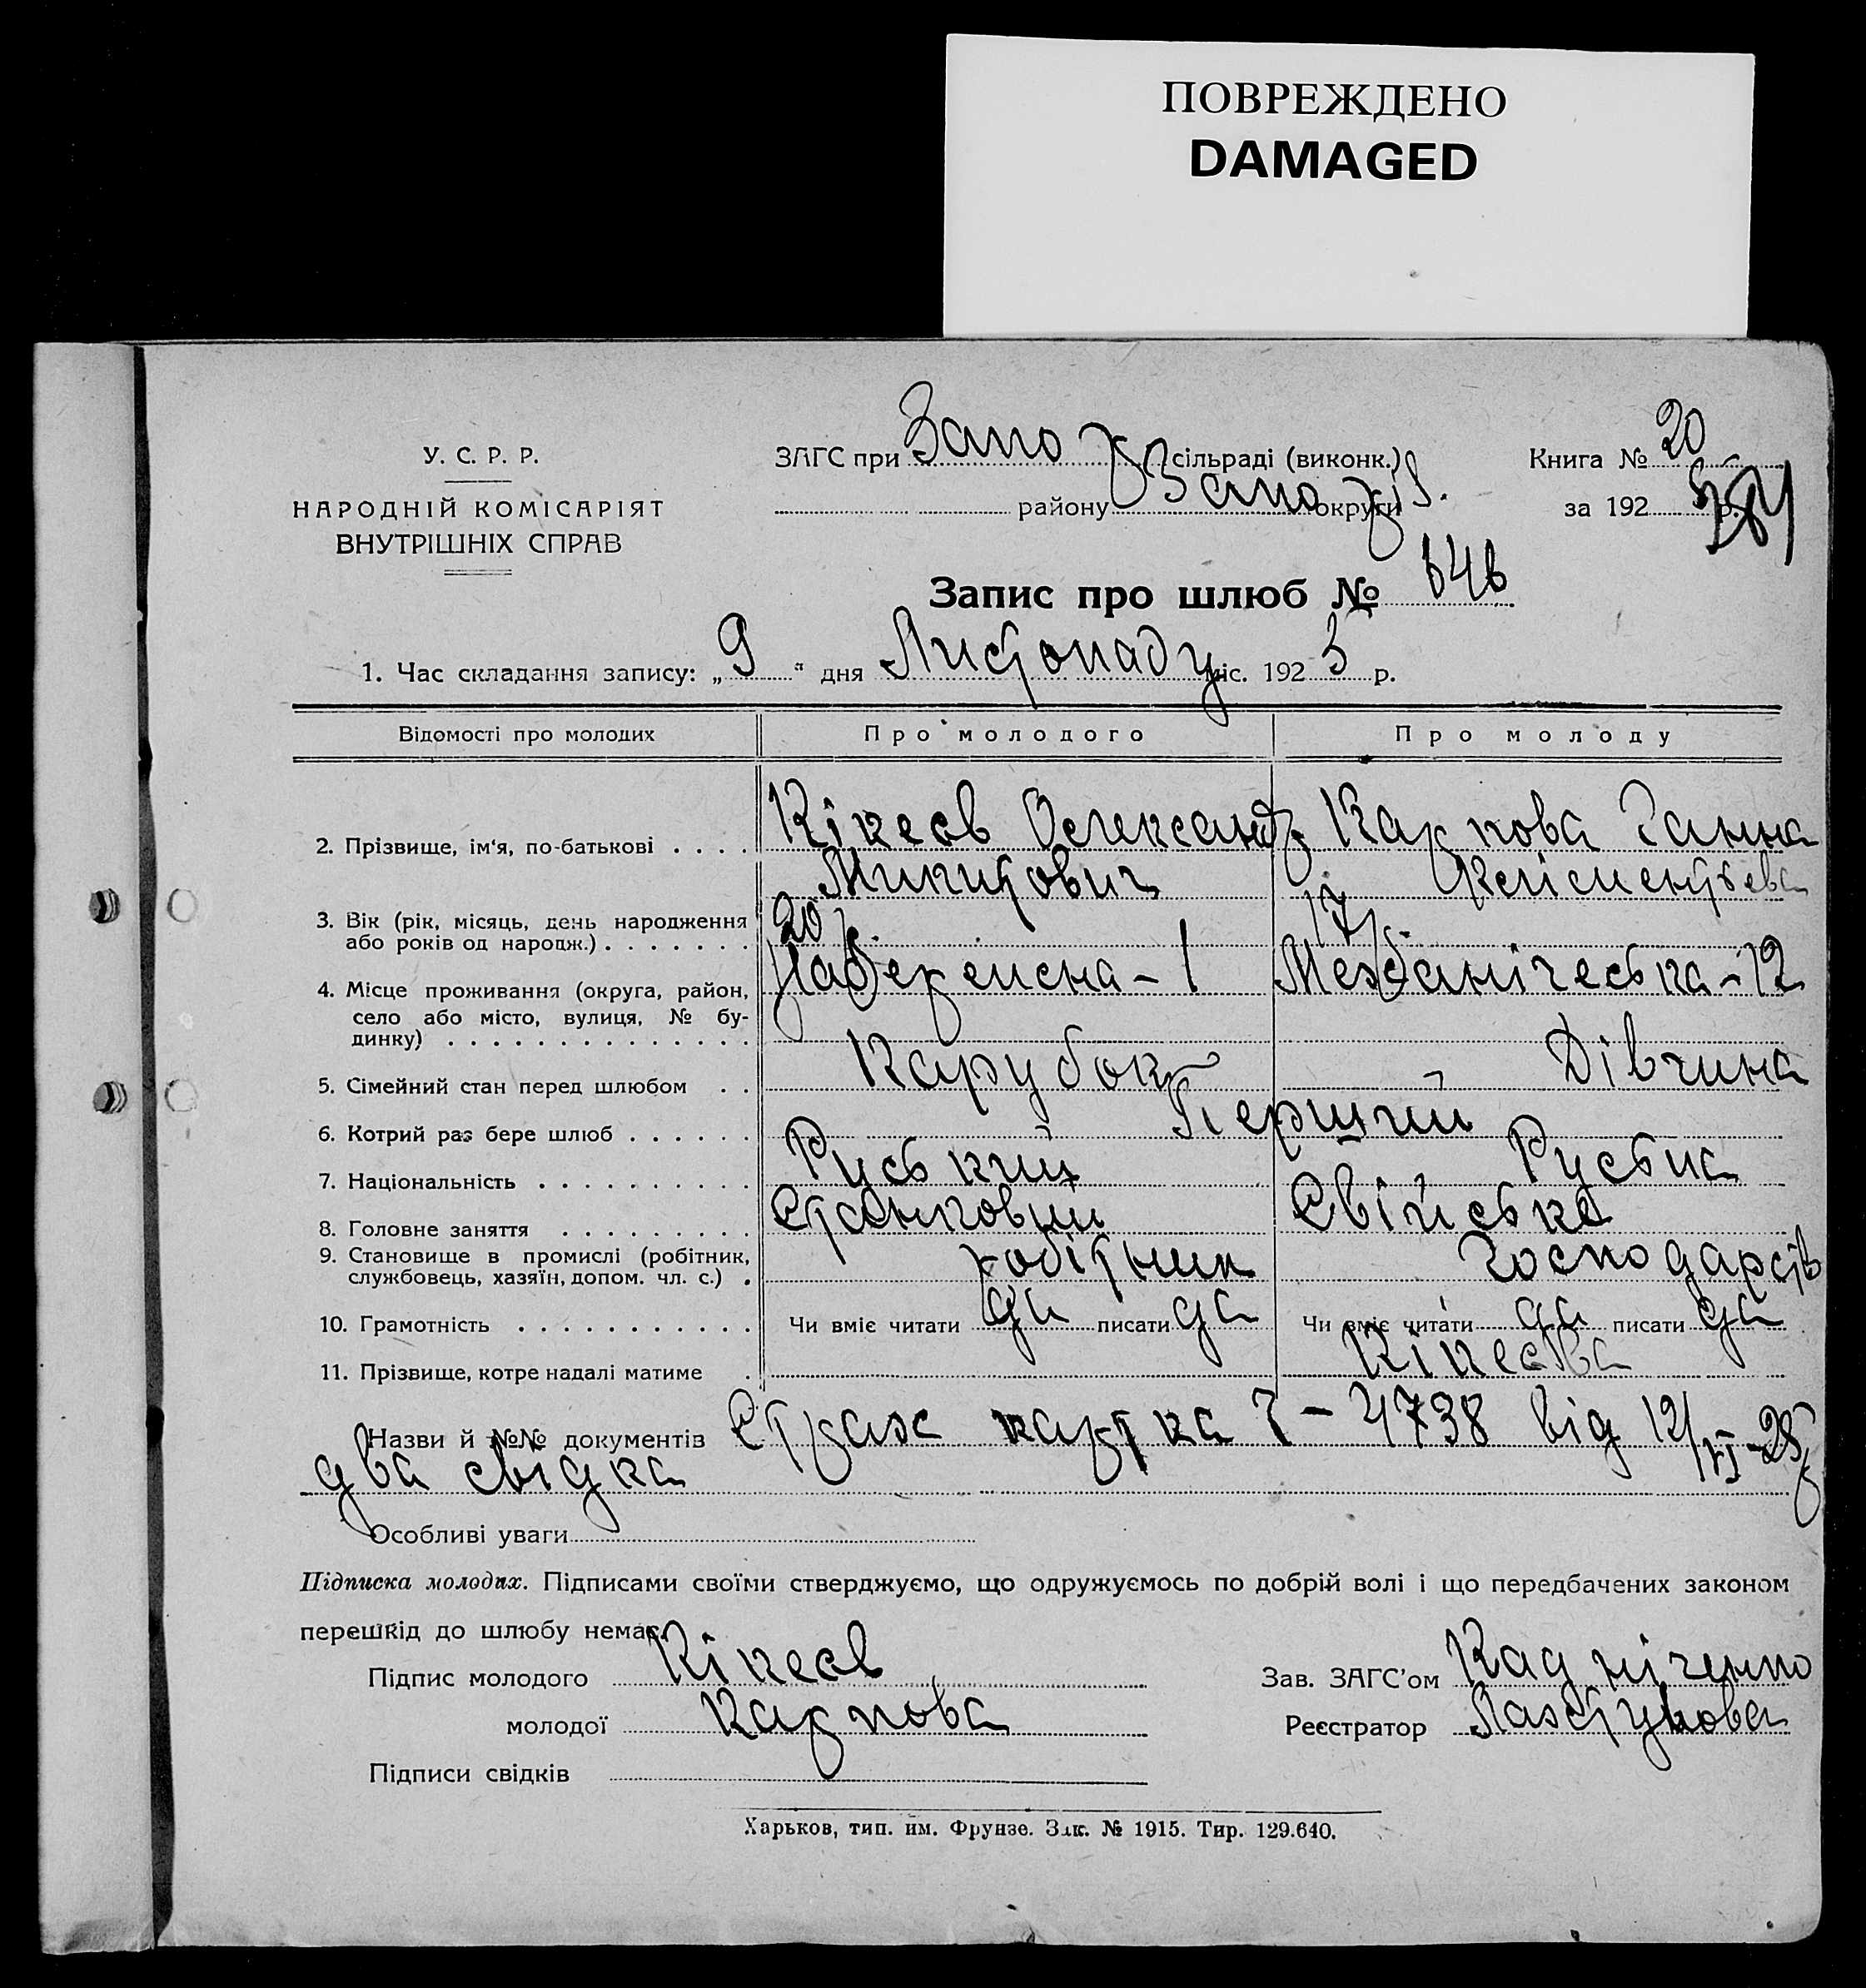 ПОВРЕЖДЕНО
DAMAGED
У. С. Р. Р.
НАРОДНІЙ КОМІСАРІЯТ
ВНУТРІШНІХ СПРАВ
ЗАГС при Запо сільраді (виконк.)
району Запо округи
Книга № 20
за 192 р.
Запис про шлюб № 646
1. Час складання запису: „ 9 “ дня Листопаду міс. 192 5 р.
Відомості про молодих Про молодого Про молоду
2. Прізвище, ім'я, по-батькові . . . . Кікеєв Олександр Карпова Ганна
Микитович Клісментьева
3. Вік (рік, місяць, день народження
або років од народж.) . . . . . . . 20 р. 17 р.
4. Місце проживання (округа, район,
село або місто, вулиця, № бу-
динку) . . . . . . . . . . . . . . . - 1 - 12
5. Сімейний стан перед шлюбом . . Карубок Дівчина
6. Котрий раз бере шлюб . . . . . . Перший
7. Національність . . . . . . . . . . Руський Руська
8. Головне заняття . . . . . . . . . Свійське
9. Становище в промислі (робітник,
службовець, хазяїн, допом. чл. с.) . робітник Господарств
10. Грамотність . . . . . . . . . . . Чи вміє читати да писати да Чи вміє читати да писати да
11. Прізвище, котре надалі матиме . Кікеєва
Назви й №№ документів Страх картка - 4738 від 12/
два свідка
Особливі уваги
Підписка молодих. Підписами своїми стверджуємо, що одружуємось по добрій волі і що передбачених законом
перешкід до шлюбу немає.
Підпис молодого Кікеєв
молодої Карпова
Підписи свідків
Зав. ЗАГС'ом
Реєстратор
Харьков, тип. им. Фрунзе. Зак. № 1915. Тир. 129.640.